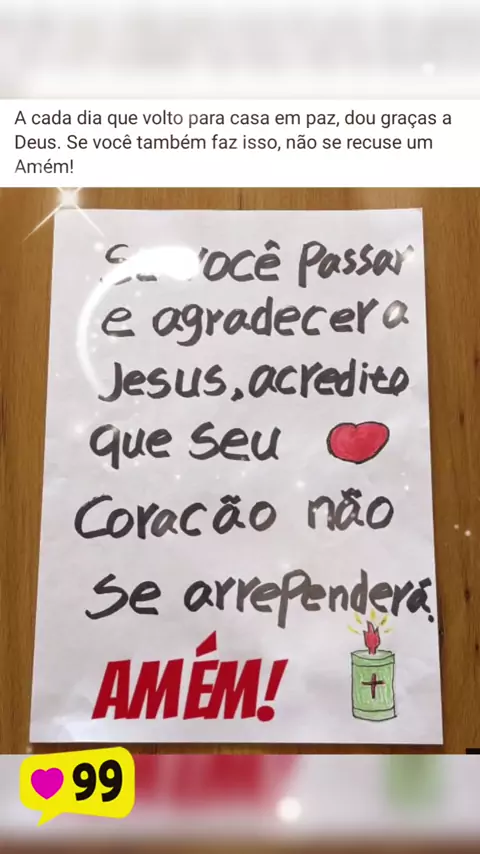 A cada dia que volto para casa em paz, dou graças a
Deus. Se você também faz isso, não se recuse um
Amém!
Se você Passar
e agradecer a
Jesus, acredito
que seu
Coracão não
Se arrePenderá.
AMÉM!
99